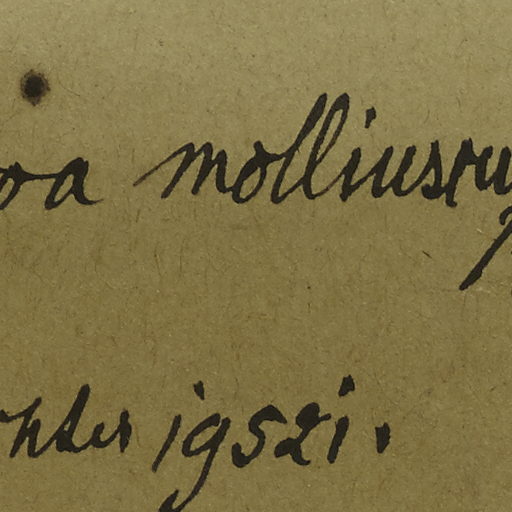 oa molliuscu
chter 19521.